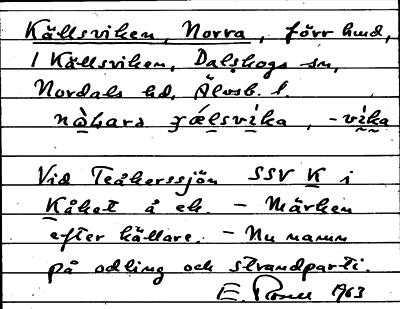 Källsviken, Norra, förr hmd,
i Källsviken, Dalskogs sn,
Nordals hd, Älvsb. l.
nòhara ɟǽlsvika, -vika
Vid Teåkerssjön SSV K i
Kåket å ek. – Märken
efter källare. – Nu namn
på odling och strandparti.
E. Rosell 1963